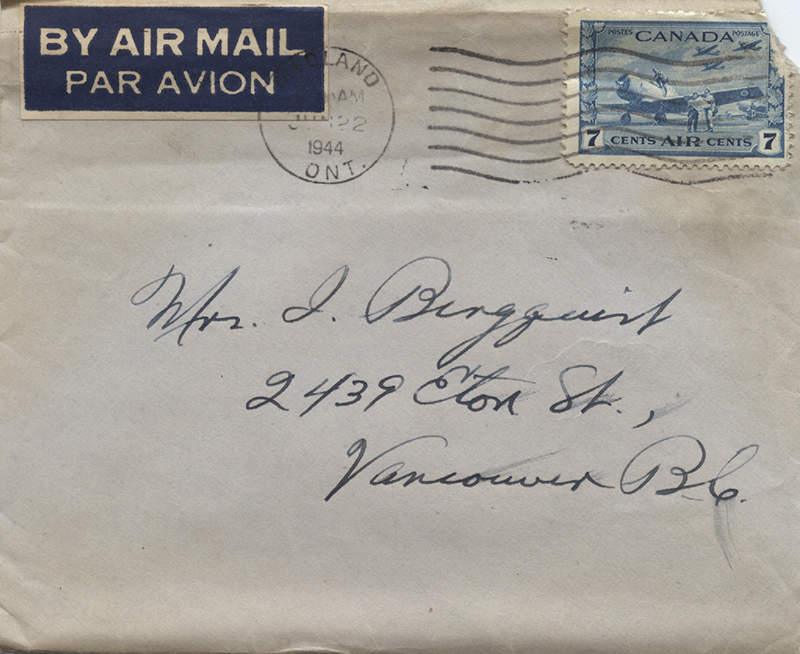 BY AIR MAIL
PAR AVION
AM
22
1944
ONT.
POSTES CANADA POSTAGE
7 CENTS AIR CENTS 7
Mrs. I. Bergquist
2439 Eton St.,
Vancouver B.C.